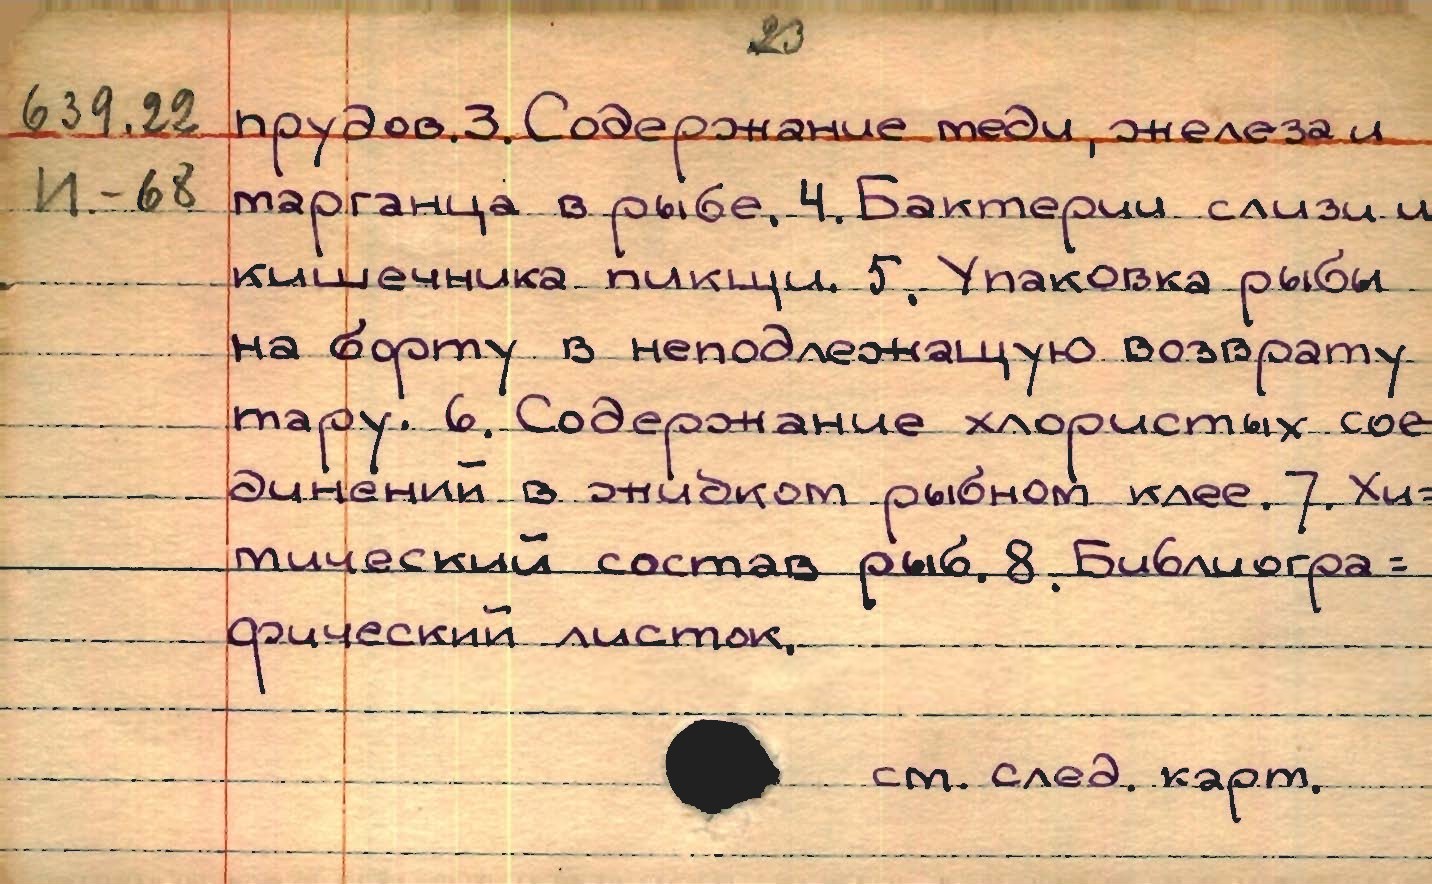 23
639.22 прудов. 3. Содержание меди, железа и
И.-68 марганца в рыбе. 4. Бактерии слизи и
кишечника пикши. 5. Упаковка рыбы
на борту в неподлежащую возврату
тару. 6. Содержание хлористых сое
динений в жидком рыбном клее. 7. Хи=
мический состав рыб. 8. Библиогра=
фический листок.
см. след. карт.